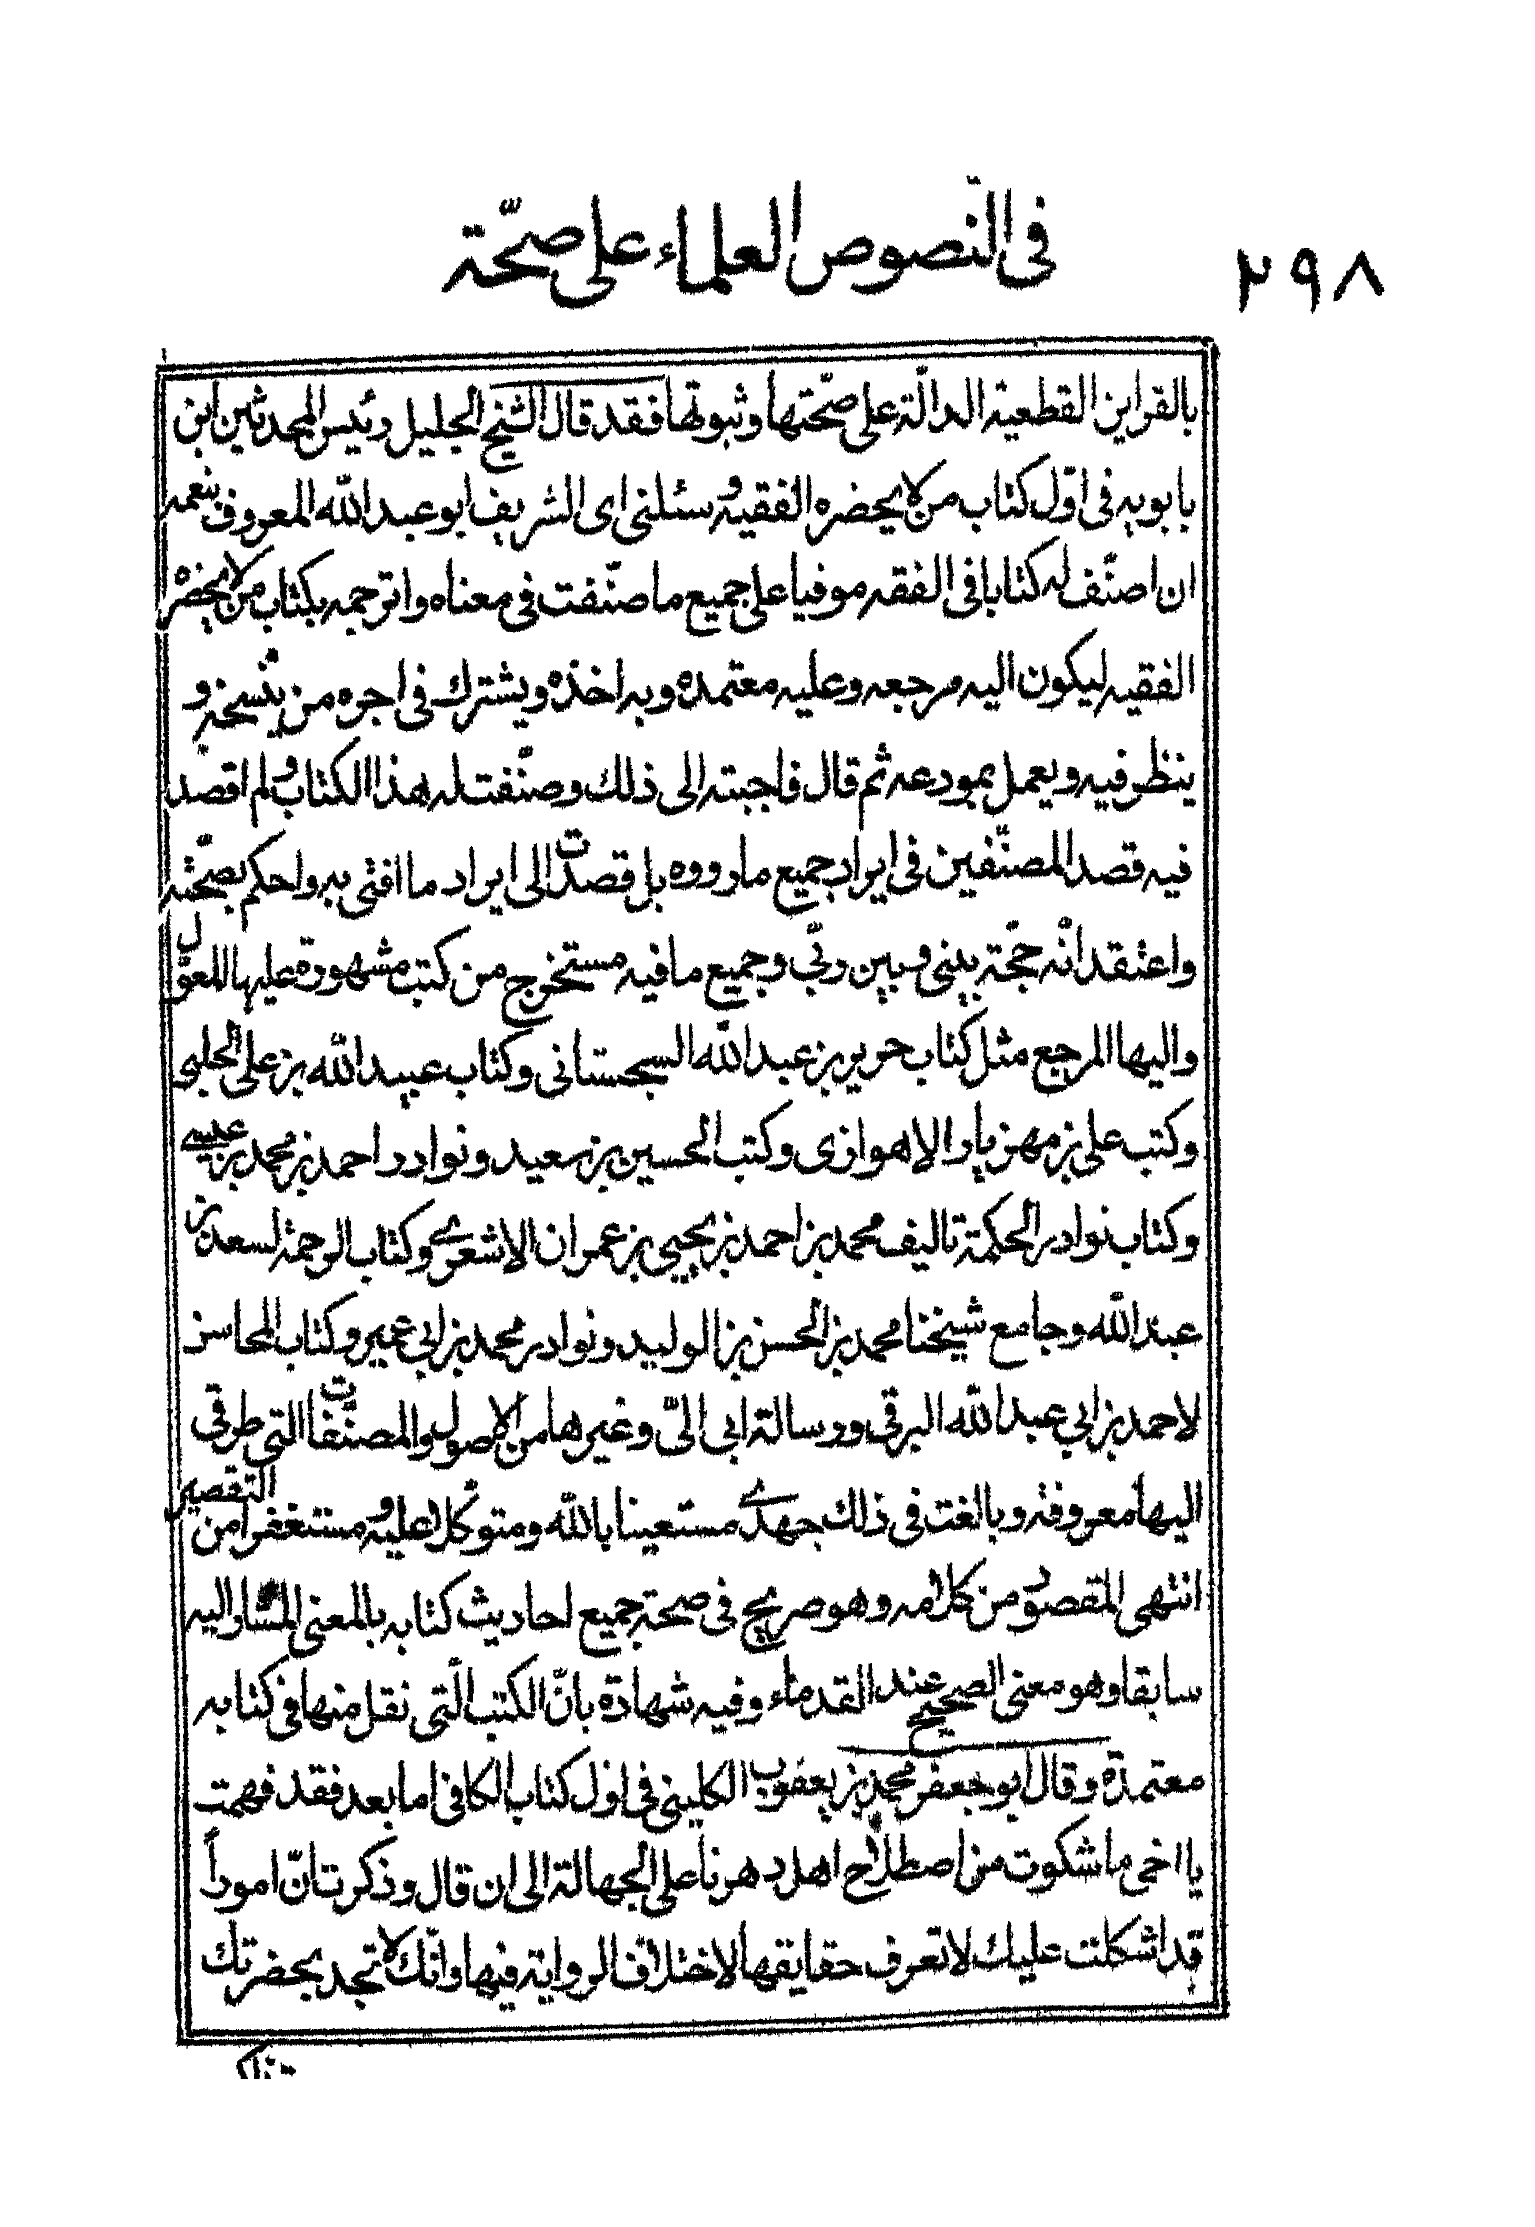 ٢٩٨
فى النّصوص العلماء على صحّة
بالقراين القطعية الدالّة على صحّتها وثبوتها فقد قال الشيخ الجليل رئيس المحدثين ابن
بابويه فى اوّل كتاب من لا يحضره الفقيه وسئلنى اى الشريف ابو عبد اللّه المعروف بنعمه
ان اصنّف له كتابا فى الفقه موفيا على جميع ما صنّفت فى معناه واترجمه بكتاب من لا يحضره
الفقيه ليكون اليه مرجعه وعليه معتمده وبه اخذه ويشترك فى اجره من ينسخه و
ينظر فيه ويعمل بمودعه ثم قال فاجبته الى ذلك وصنّفت له هذا الكتاب ولم اقصد
فيه قصد المصنّفين فى ايراد جميع ما رووه بل قصدت الى ايراد ما افتى به واحكم بصحّته
واعتقد انّه حجّة بينى وبين ربّى وجميع ما فيه مستخرج من كتب مشهورة عليها المعوّل
واليها المرجع مثل كتاب حريز بن عبد اللّه السجستانى وكتاب عبيد اللّه بن على الحلبى
وكتب على بن مهزيار الاهوازى وكتب الحسين بن سعيد ونوادر احمد بن محمد بن عيسى
وكتاب نوادر الحكمة تاليف محمد بن احمد بن يحيى بن عمران الاشعرى وكتاب الرحمة لسعد بن
عبد اللّه وجامع شيخنا محمد بن الحسن بن الوليد ونوادر محمد بن ابى عمير وكتاب المحاسن
لاحمد بن ابى عبد اللّه البرقى ورسالة ابى الىّ وغيرها من الاصول والمصنّفات التى طرقى
اليها معروفة وبالغت فى ذلك جهدى مستعينا باللّه ومتوكلا عليه ومستغفرا من التقصير
انتهى المقصود من كلامه وهو صريح فى صحة جميع احاديث كتابه بالمعنى المشار اليه
سابقا وهو معنى الصحيح عند القدماء وفيه شهادة بانّ الكتب الّتى نقل منها فى كتابه
معتمدة وقال ابو جعفر محمد بن يعقوب الكلينى فى اول كتاب الكافى اما بعد فقد فهمت
يا اخى ما شكوت من اصطلاح اهل دهرنا على الجهالة الى ان قال وذكرت انّ اموراً
قد اشكلت عليك لا تعرف حقايقها لاختلاف الرواية فيها وانّك لا تجد بحضرتك